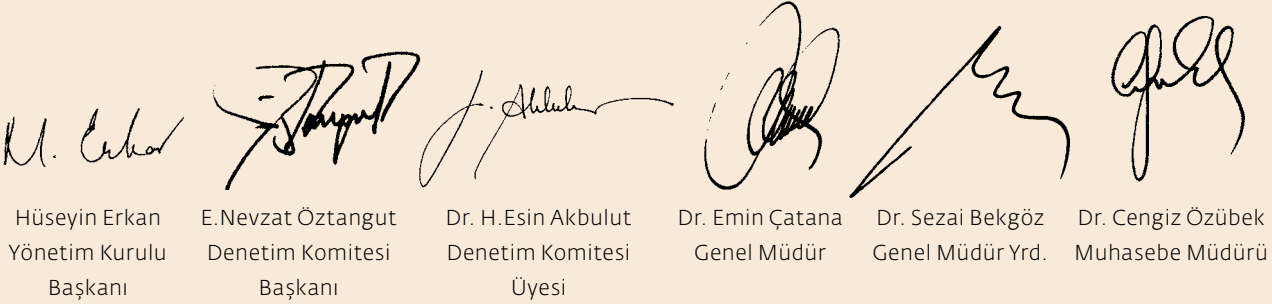 Hüseyin Erkan
Yönetim Kurulu
Başkanı
E.Nevzat Öztangut
Denetim Komitesi
Başkanı
Dr. H.Esin Akbulut
Denetim Komitesi
Üyesi
Dr. Emin Çatana
Genel Müdür
Dr. Sezai Bekgöz
Genel Müdür Yrd.
Dr. Cengiz Özübek
Muhasebe Müdürü